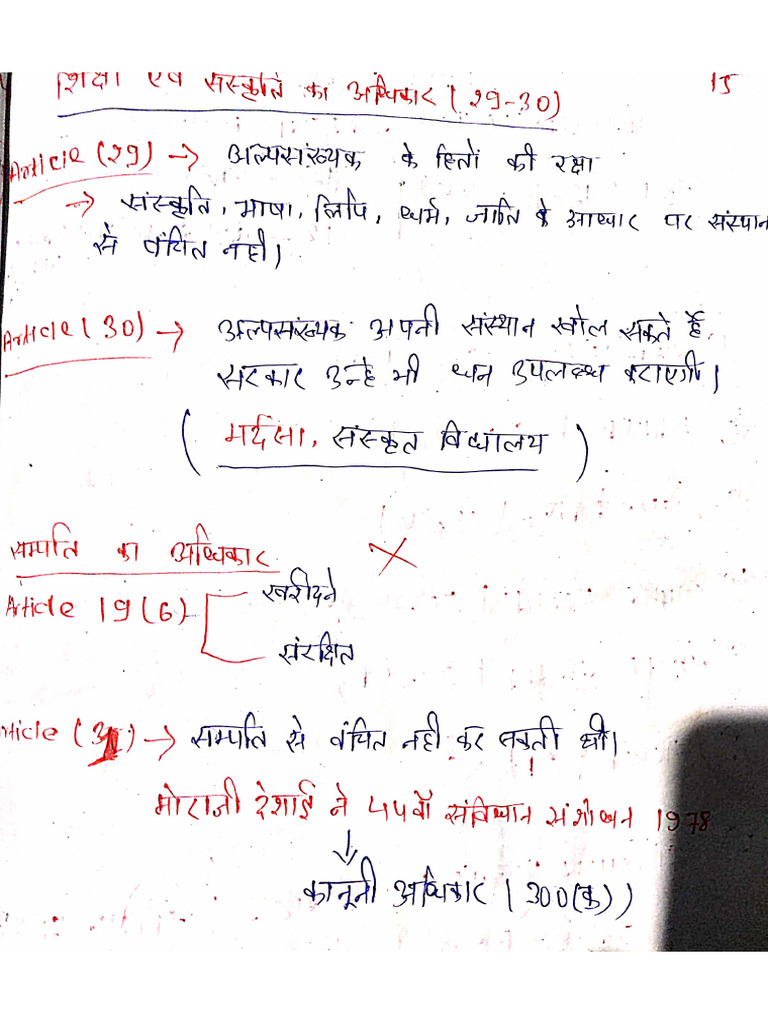 शिक्षा एवं संस्कृति का अधिकार (29-30) 15
Article (29) → अल्पसंख्यक के हितों की रक्षा
→ संस्कृति, भाषा, लिपि, धर्म, जाति के आधार पर संस्थान
से वंचित नही।
Article (30) → अल्पसंख्यक अपनी संस्थान खोल सकते हैं
सरकार उन्हे भी धन उपलब्ध कराएगी।
( मर्दसा, संस्कृत विद्यालय )
सम्पति का अधिकार ×
Article 19 (6) खरीदने
संरक्षित
Article (31) → सम्पति से वंचित नही कर सकती थी।
मोरारजी देशाई ने 44वाँ संविधान संशोधन 1978
↓
कानूनी अधिकार (300(क))